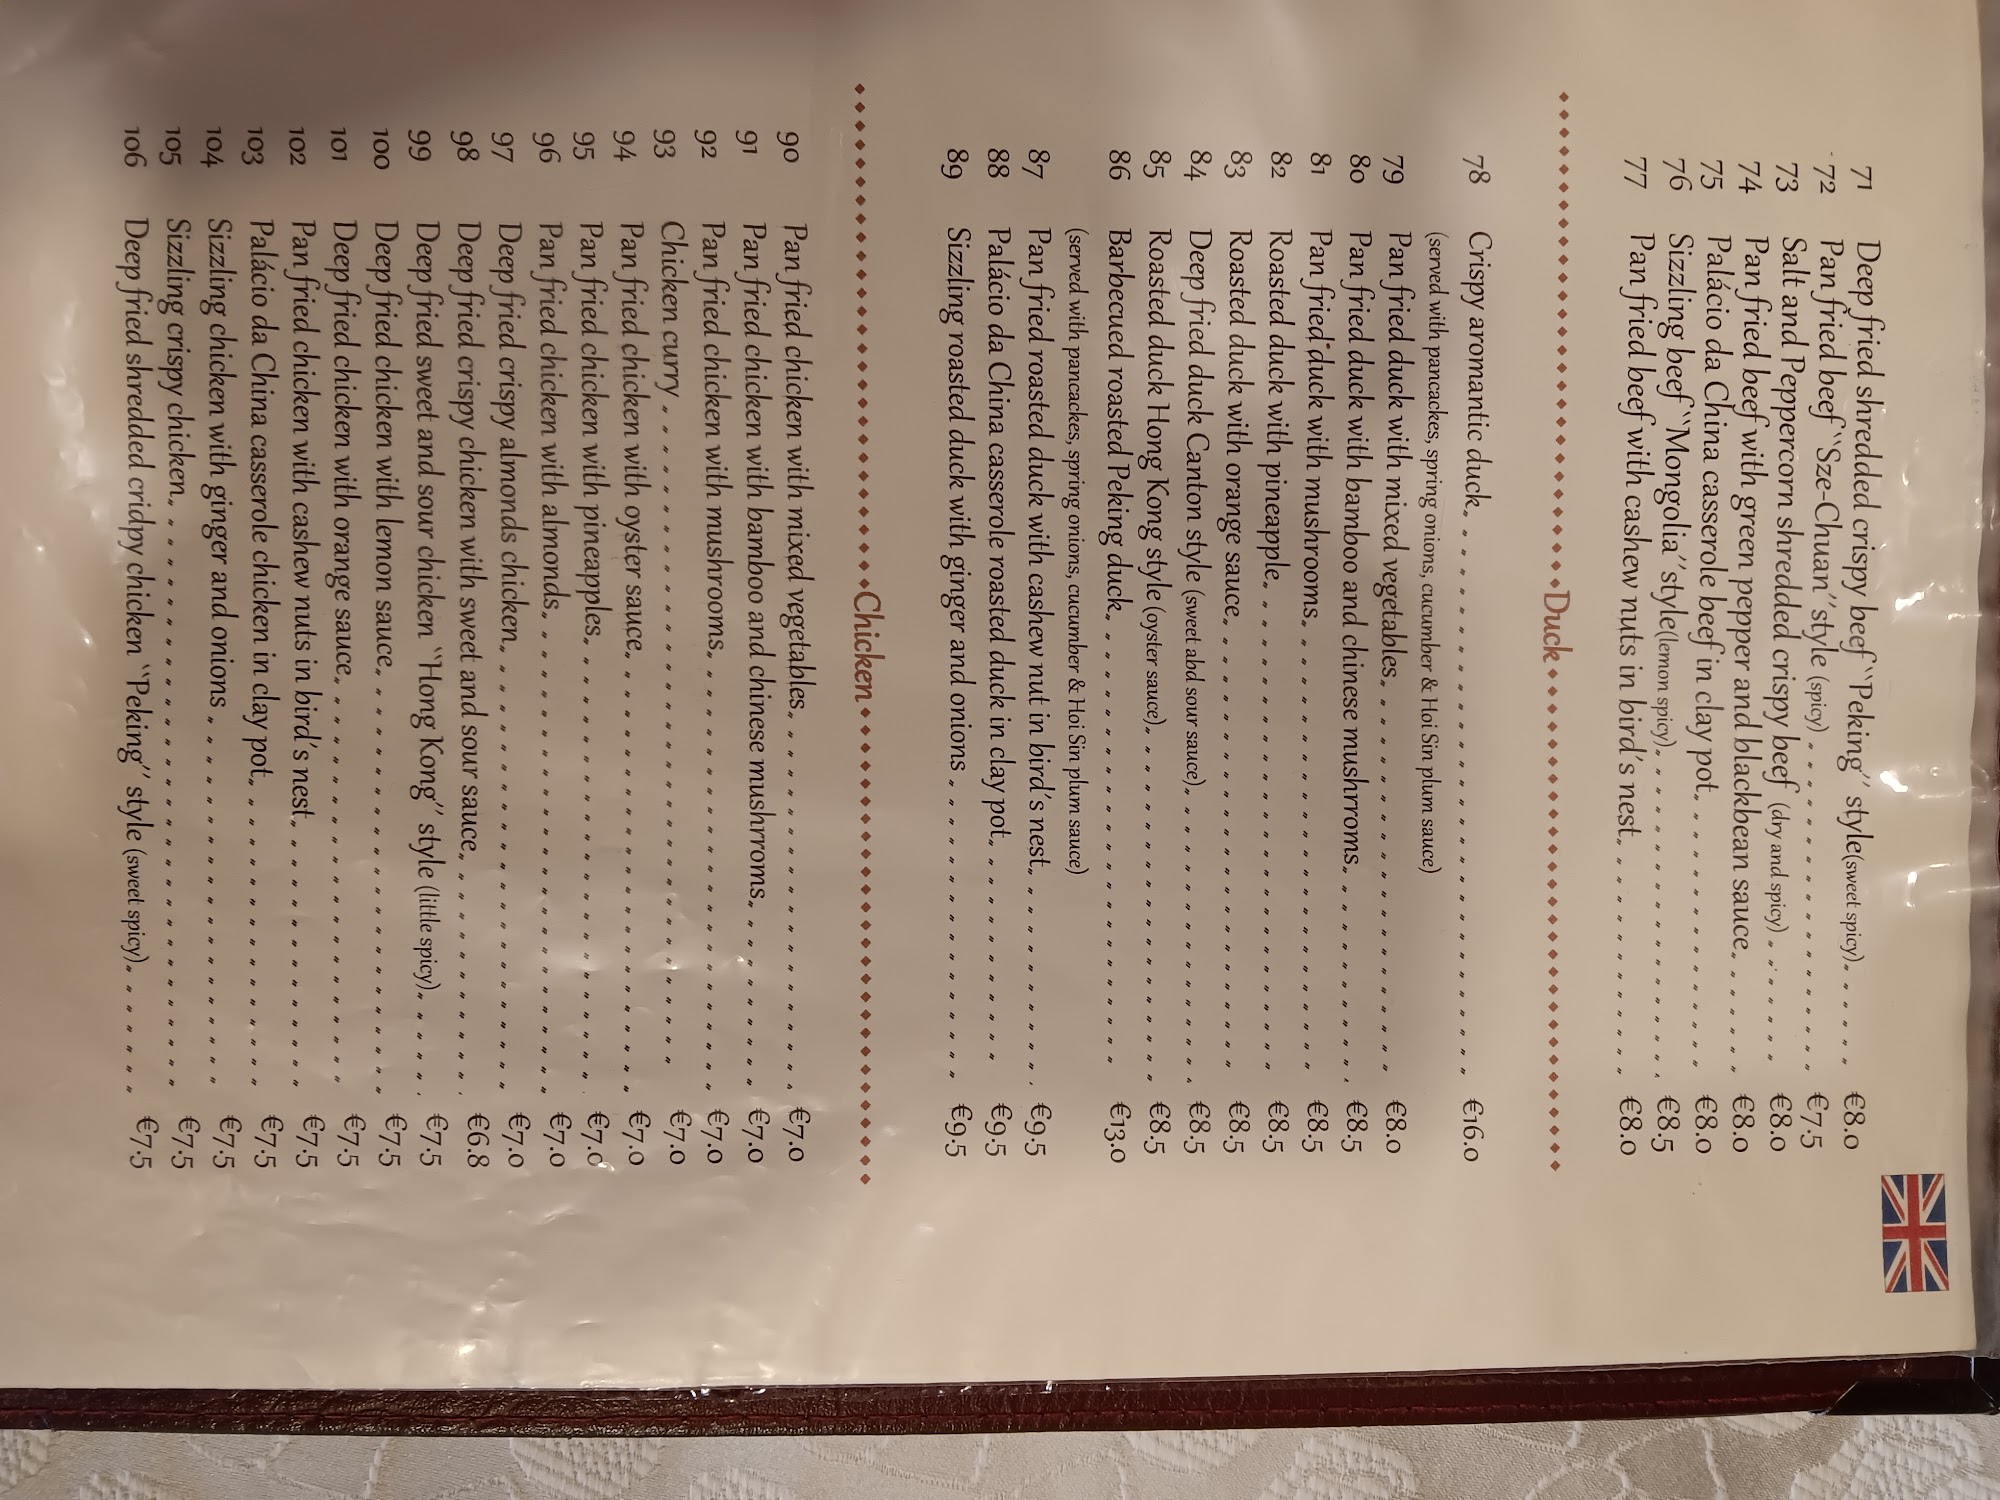 71 Deep fried shredded crispy beef "Peking" style(sweet spicy) €8.0
72 Pan fried beef "Sze-Chuan" style (spicy) €7.5
73 Salt and Peppercorn shredded crispy beef (dry and spicy) €8.0
74 Pan fried beef with green pepper and blackbean sauce €8.0
75 Palácio da China casserole beef in clay pot €8.0
76 Sizzling beef "Mongolia" style(lemon spicy) €8.5
77 Pan fried beef with cashew nuts in bird's nest €8.0
Duck
78 Crispy aromantic duck €16.0
(served with pancackes, spring onions, cucumber & Hoi Sin plum sauce)
79 Pan fried duck with mixed vegetables €8.0
80 Pan fried duck with bamboo and chinese mushrroms €8.5
81 Pan fried duck with mushrooms €8.5
82 Roasted duck with pineapple €8.5
83 Roasted duck with orange sauce €8.5
84 Deep fried duck Canton style (sweet abd sour sauce) €8.5
85 Roasted duck Hong Kong style (oyster sauce) €8.5
86 Barbecued roasted Peking duck €13.0
(served with pancackes, spring onions, cucumber & Hoi Sin plum sauce)
87 Pan fried roasted duck with cashew nut in bird's nest €9.5
88 Palácio da China casserole roasted duck in clay pot €9.5
89 Sizzling roasted duck with ginger and onions €9.5
Chicken
90 Pan fried chicken with mixed vegetables €7.0
91 Pan fried chicken with bamboo and chinese mushrroms €7.0
92 Pan fried chicken with mushrooms €7.0
93 Chicken curry €7.0
94 Pan fried chicken with oyster sauce €7.0
95 Pan fried chicken with pineapples €7.0
96 Pan fried chicken with almonds €7.0
97 Deep fried crispy almonds chicken €7.0
98 Deep fried crispy chicken with sweet and sour sauce €6.8
99 Deep fried sweet and sour chicken "Hong Kong" style (little spicy) €7.5
100 Deep fried chicken with lemon sauce €7.5
101 Deep fried chicken with orange sauce €7.5
102 Pan fried chicken with cashew nuts in bird's nest €7.5
103 Palácio da China casserole chicken in clay pot €7.5
104 Sizzling chicken with ginger and onions €7.5
105 Sizzling crispy chicken €7.5
106 Deep fried shredded cridpy chicken "Peking" style (sweet spicy) €7.5